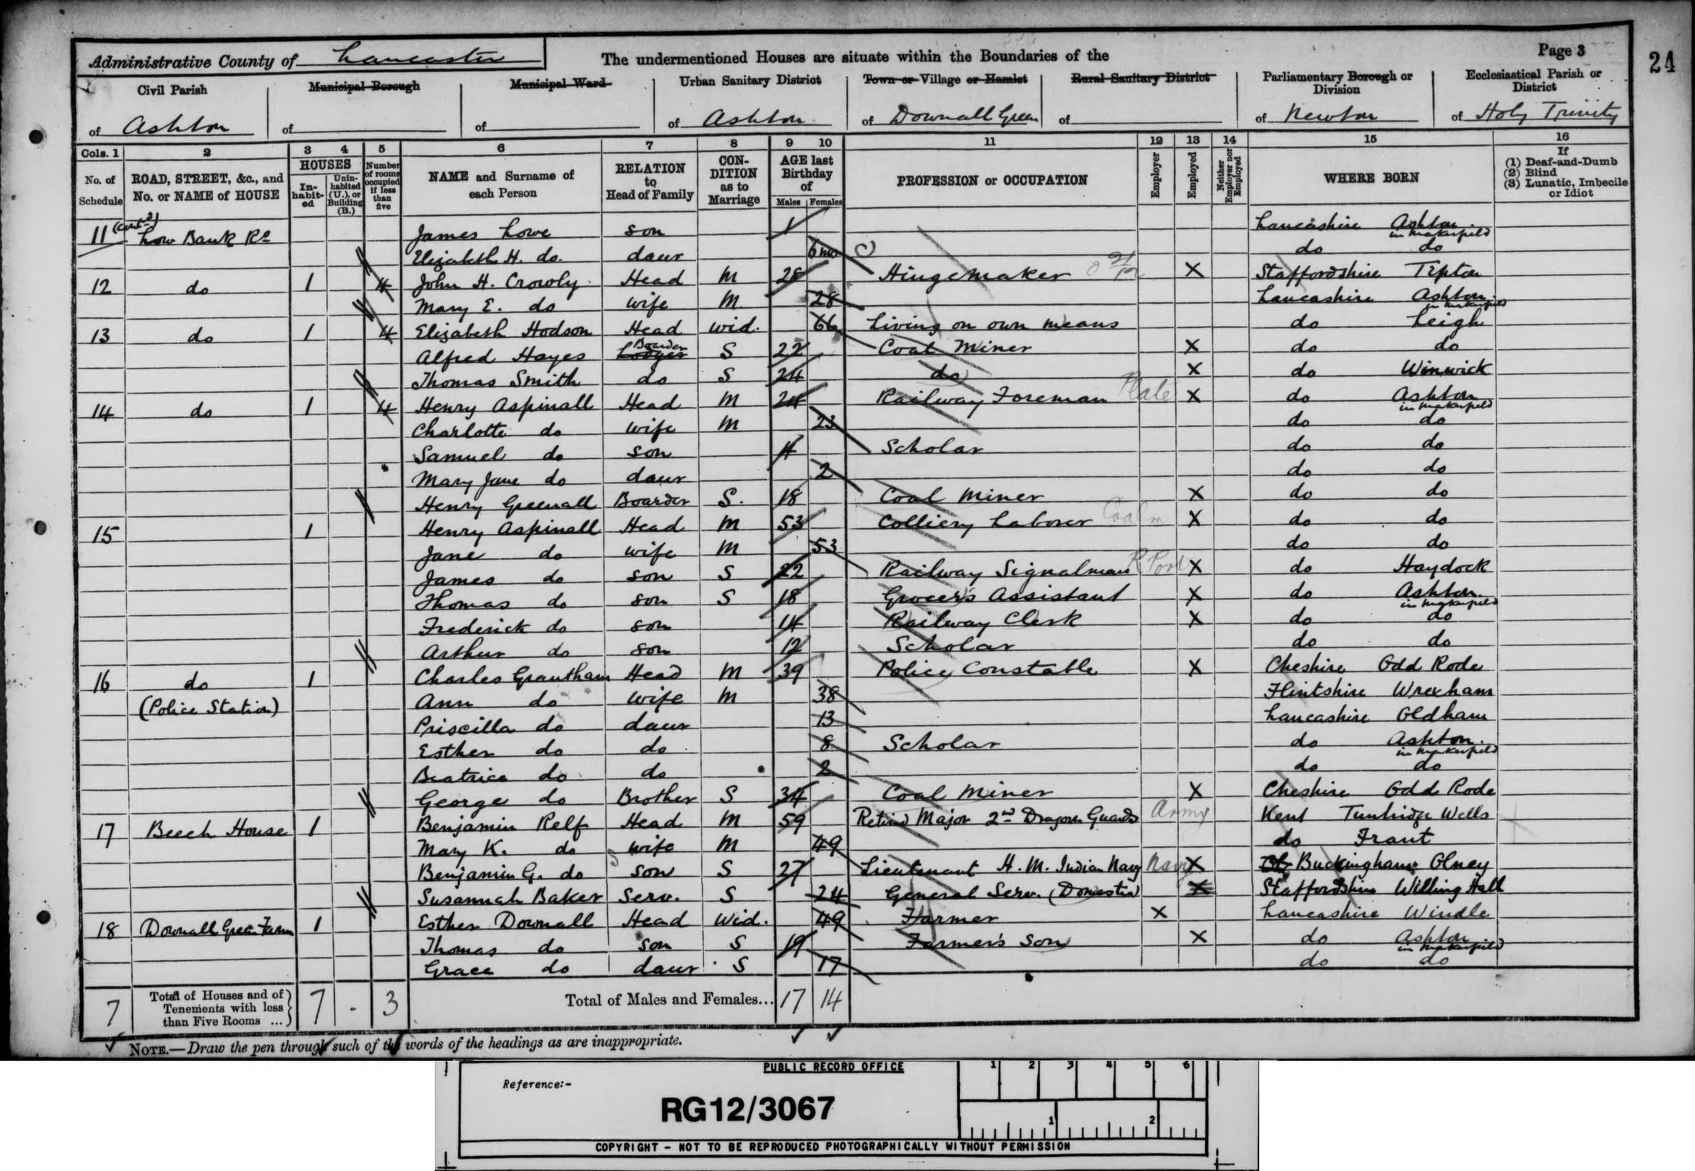 Administrative County of Lancaster The undermentioned Houses are situate within the Boundaries of the Page 3 24
Civil Parish Municipal Borough Municipal Ward Urban Sanitary District Town or Village or Hamlet Rural Sanitary District Parliamentary Borough or Division Ecclesiastical Parish or District
of Ashton of of of Ashton of Downall Green of of Newton of Holy Trinity
Cols. 1 2 3 4 5 6 7 8 9 10 11 12 13 14 15 16
No. of Schedule ROAD, STREET, &c., and No. or NAME of HOUSE HOUSES Inhabited Uninhabited (U.), or Building (B.) Number of rooms occupied if less than five NAME and Surname of each Person RELATION to Head of Family CONDITION as to Marriage AGE last Birthday of Males Females PROFESSION or OCCUPATION Employer Employed Neither Employer nor Employed WHERE BORN If (1) Deaf-and-Dumb (2) Blind (3) Lunatic, Imbecile or Idiot
11 Low Bank Rd James Lowe son 1 Lancashire Ashton in Makerfield
Elizabeth H. do. daur 6 mo do do
12 do 1 4 John H. Crowly Head M 28 Hingemaker X Staffordshire Tipton
Mary E. do wife M 28 Lancashire Ashton in Makerfield
13 do 1 4 Elizabeth Hodson Head Wid. 66 Living on own means do Leigh
Alfred Hayes Lodger Boarder S 22 Coal Miner X do do
Thomas Smith do S 24 do X do Winwick
14 do 1 4 Henry Aspinall Head M 24 Railway Foreman X do Ashton in Makerfield
Charlotte do wife M 23 do do
Samuel do son 4 Scholar do do
Mary Jane do daur 2 do do
Henry Greenall Boarder S. 18 Coal Miner X do do
15 1 Henry Aspinall Head M 53 Colliery Laborer X do do
Jane do wife M 53 do do
James do son S 22 Railway Signalman X do Haydock
Thomas do son S 18 Grocer's Assistant X do Ashton in Makerfield
Frederick do son 14 Railway Clerk X do do
Arthur do son 12 Scholar do do
16 do 1 Charles Grantham Head M 39 Police Constable X Cheshire Odd Rode
(Police Station) Ann do wife M 38 Flintshire Wrexham
Priscilla do daur 13 Lancashire Oldham
Esther do do 8 Scholar do Ashton in Makerfield
Beatrice do do 2 do do
George do Brother S 34 Coal Miner X Cheshire Odd Rode
17 Beech House 1 Benjamin Relf Head M 59 Retired Major 2nd Dragoon Guards Army Kent Tunbridge Wells
Mary K. do wife M 49 do Frant
Benjamin G. do son S 27 Lieutenant H. M. Indian Navy Navy X Buckingham Olney
Susannah Baker Serv. S 24 General Serv. (Domestic) X Staffordshire Willing Hall
18 Downall Green Farm 1 Esther Downall Head Wid. 49 Farmer X Lancashire Windle
Thomas do son S 19 Farmer's Son X do Ashton in Makerfield
Grace do daur S 17 do do
7 Total of Houses and of Tenements with less than Five Rooms ... 7 - 3 Total of Males and Females... 17 14
NOTE.—Draw the pen through such of the words of the headings as are inappropriate.
PUBLIC RECORD OFFICE 1 2 3 4 5 6
Reference:-
RG12/3067
1 2
COPYRIGHT - NOT TO BE REPRODUCED PHOTOGRAPHICALLY WITHOUT PERMISSION